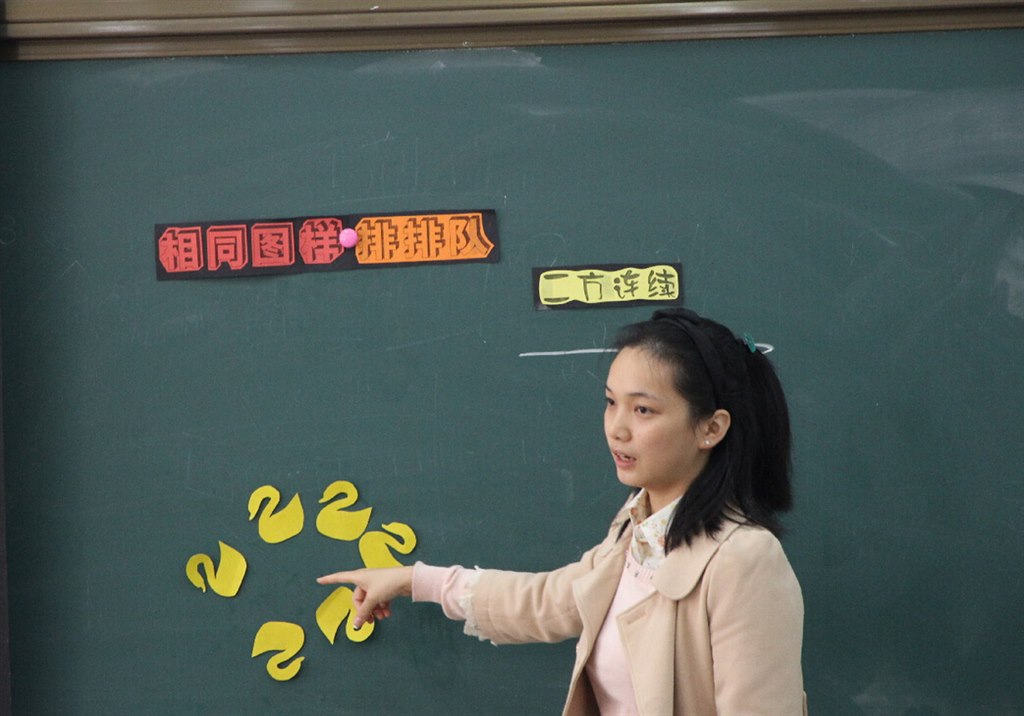 相同图样·排排队
二方连续